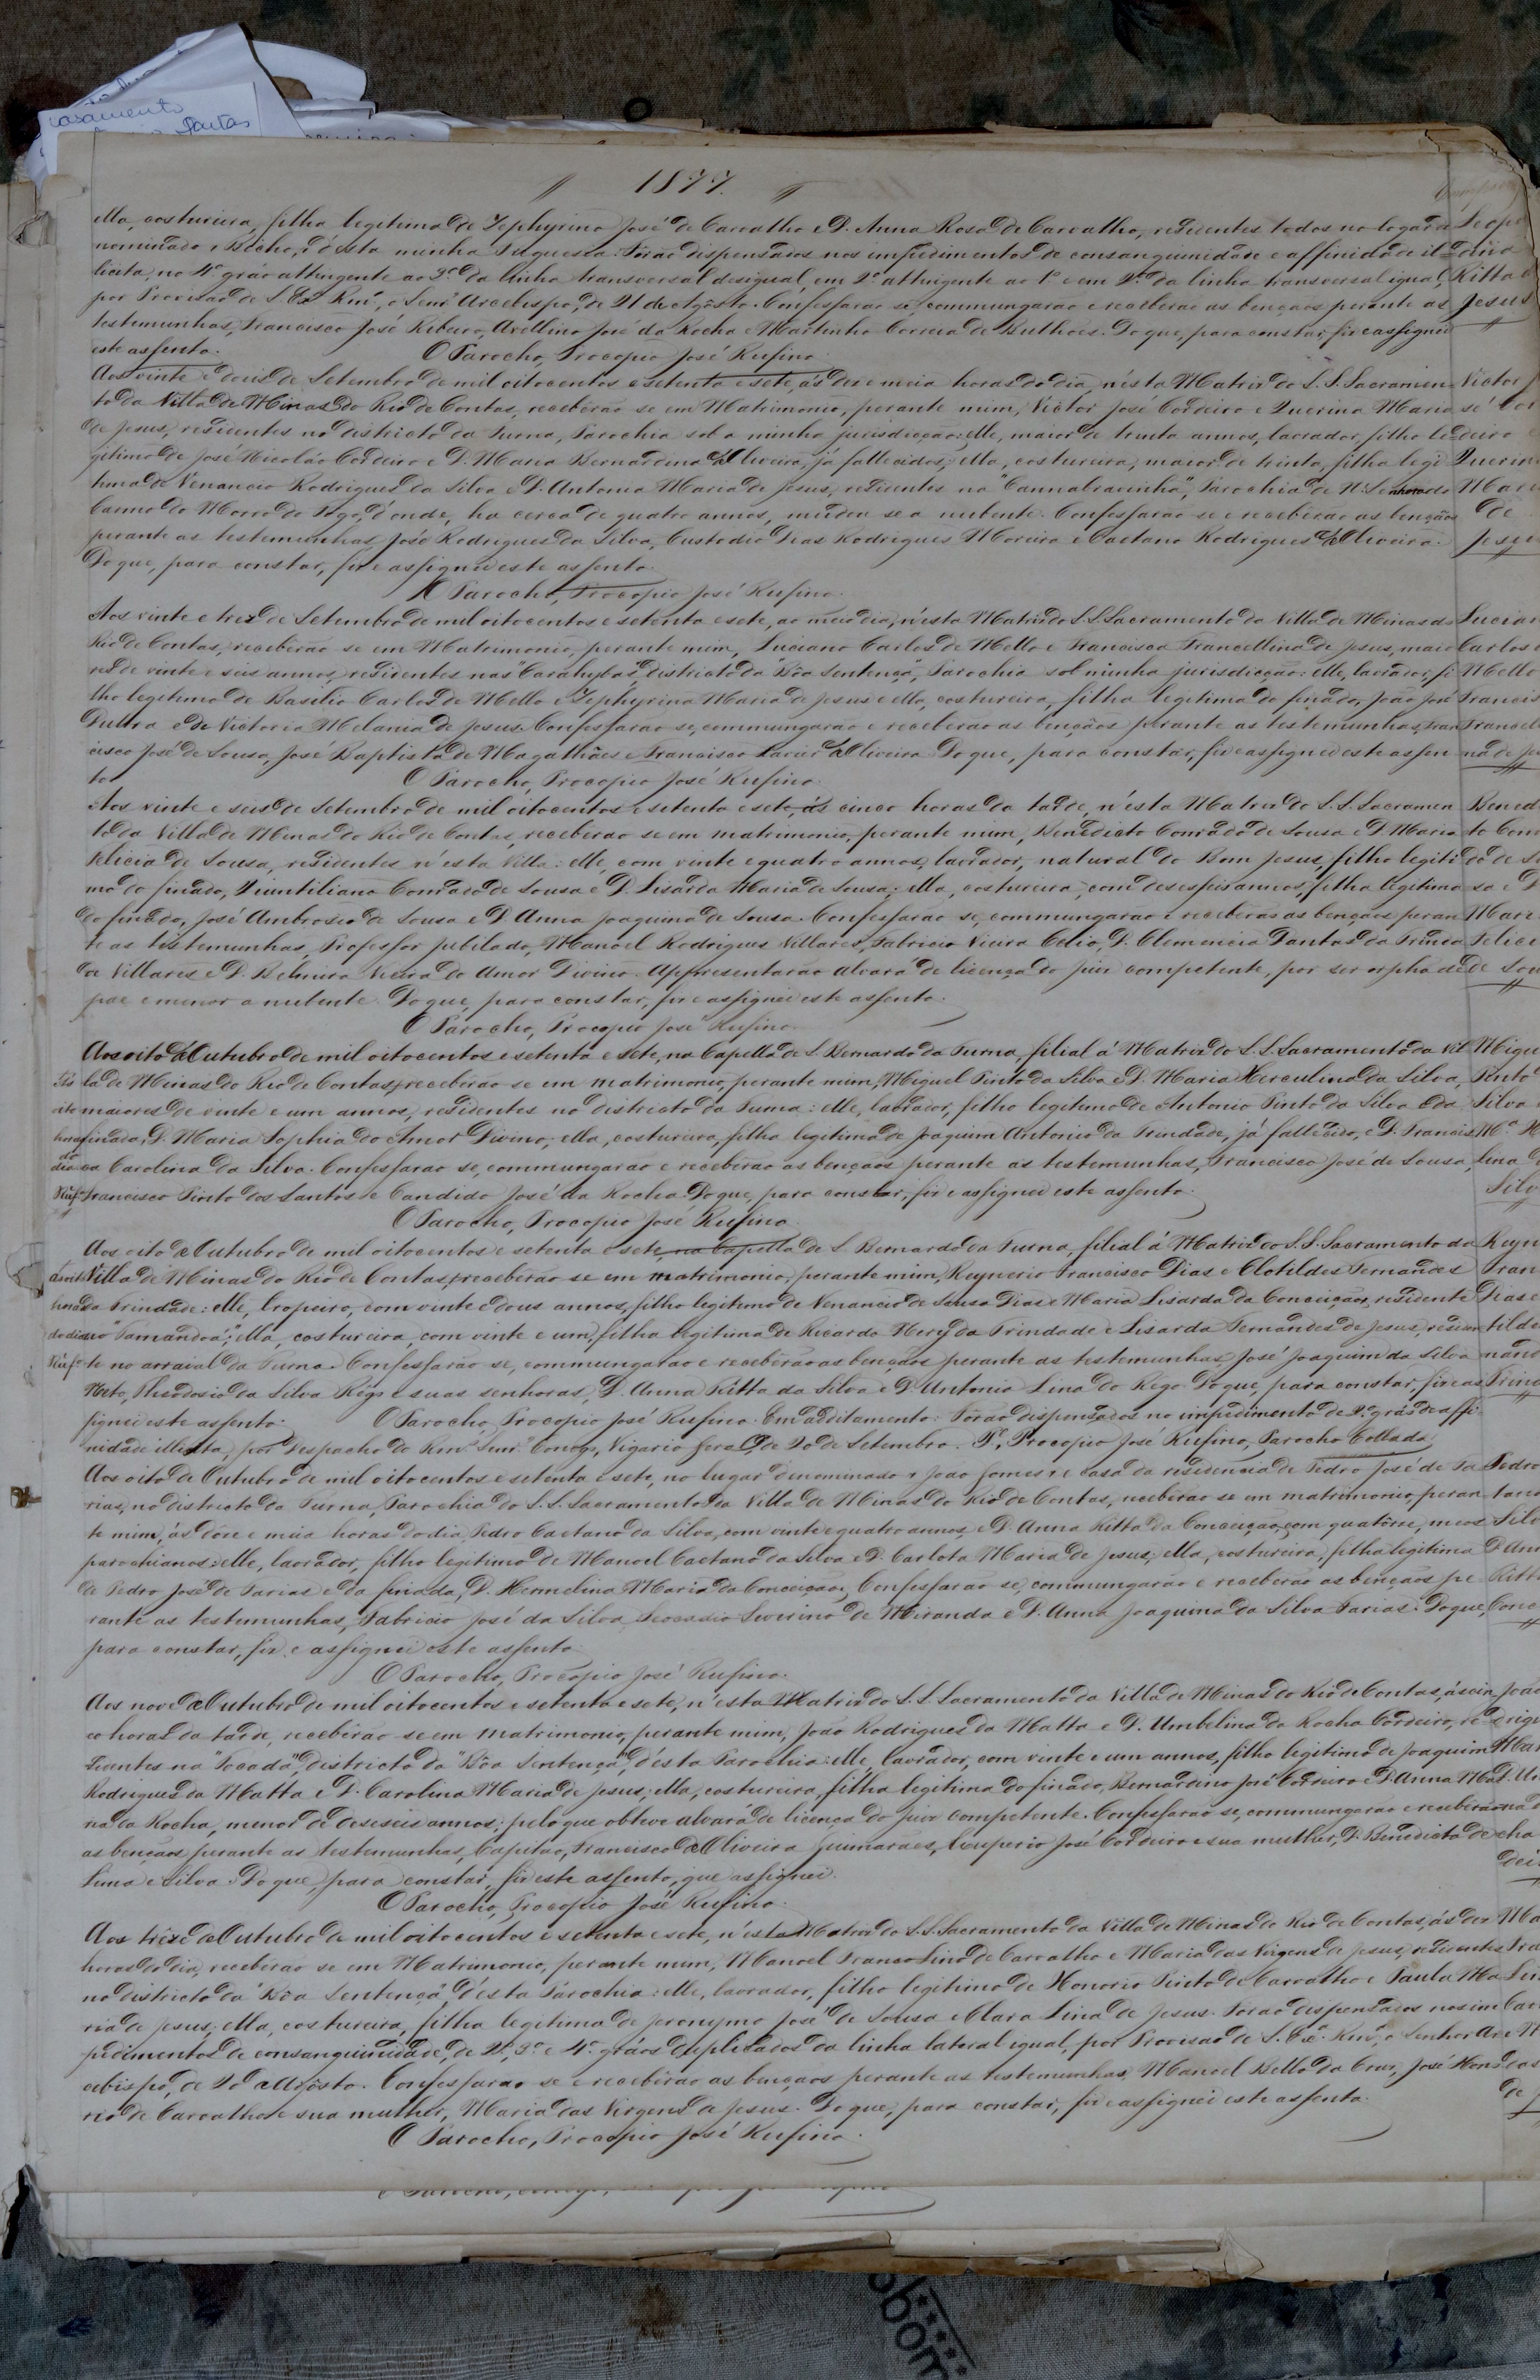 casamento
Dantas
1877.
ella, costureira, filha legitima de Zephyrino José de Carvalho e D. Anna Rosa de Carvalho, residentes todos no logar de Leopo
nominado "Bicho", d'esta minha Freguesia. Fôrão dispensados nos impedimentos de consanguinidade e affinidade il- dina
licita, no 4º gráo attingente ao 3º da linha transversal desigual, em 2º attingente ao 1º e em 2º da linha transversal igual, Ritta
por Provisão de S. Exª Rmª, o Senr Arcebispo, de 21 de Agôsto. Confessarão se, commungarão e receberão as bençãos perante as Jesus
testemunhas, Francisco José Ribeiro, Avellino José da Rocha e Martinho Correia de Bulhões. Do que, para constar, fiz e assignei
este assento. O Parocho, Procopio José Rufino.
Aos vinte e dous de Setembro de mil oitocentos e setenta e sete, ás dez e meia horas do dia, n'esta Matriz do S. S. Sacramen- Victor
to da Villa de Minas do Rio de Contas, receberão se em Matrimonio, perante mim, Victor José Cordeiro e Querina Maria sé Cor
de Jesus, residentes no districto da Furna, Parochia sob a minha jurisdicção: elle, maior de trinta annos, lavrador, filho le- deiro
gitimo de José Nicoláo Cordeiro e D. Maria Bernardina d'Oliveira, já fallecidos; ella, costureira, maior de trinta, filha legi- Querin
tima de Venancio Rodrigues da Silva e D. Antonia Maria de Jesus, residentes na "Cannabravinha", Parochia de N. Senhora do Mari
Carmo do Morro do Fogo, d'onde, ha cerca de quatro annos, mudou se a nubente. Confessarão se e receberão as bençãos de
perante as testemunhas José Rodrigues da Silva, Custodio Dias Rodrigues Moreira e Caetano Rodrigues d'Oliveira. Jesu
Do que, para constar, fiz e assignei este assento.
O Parocho, Procopio José Rufino.
Aos vinte e trez de Setembro de mil oitocentos e setenta e sete, ao meio dia, n'esta Matriz do S. S. Sacramento da Villa de Minas do Lucian
Rio de Contas, receberão se em Matrimonio, perante mim, Luciano Carlos de Mello e Francisca Francellina de Jesus, maio- Carlos
res de vinte e seis annos, residentes nas "Carahybas", districto da "Bôa Sentença", Parochia sob minha jurisdicção: elle, lavrador, fi- Mello
lho legitimo de Basilio Carlos de Mello e Zephyrina Maria de Jesus e ella, costureira, filha legitima do finado, João José Francis
Dultra e de Victoria Melania de Jesus. Confessarão se, commungarão e receberão as bençãos perante as testemunhas, Fran- Francel
cisco José de Sousa, José Baptista de Magalhães e Francisco Xavier d'Oliveira. Do que, para constar, fiz e assignei este assen- na de Je
to. O Parocho, Procopio José Rufino.
Aos vinte e seis de Setembro de mil oitocentos e setenta e sete, ás cinco horas da tarde, n'esta Matriz do S. S. Sacramen- Bened
to da Villa de Minas do Rio de Contas, receberão se em matrimonio, perante mim, Benedicto Conrado de Sousa e D. Maria to Con
Felicia de Sousa, residentes n'esta Villa: elle, com vinte e quatro annos, lavrador, natural do Bom Jesus, filho legiti- do de S
mo do finado, Quintiliano Conrado de Sousa e D. Lisarda Maria de Sousa; ella, costureira, com deseseis annos, filha legitima sa e D
do finado, José Ambrosio de Sousa e D. Anna Joaquina de Sousa. Confessarão se, commungarão e receberão as bençãos peran- Mari
te as testemunhas, Professor jubilado, Manoel Rodrigues Villares, Fabricio Vieira Celio, D. Clemencia Dantas da Trinda- Felici
de Villares e D. Belmira Vieira do Amor Divino. Appresentarão alvará de licença do juiz competente, por ser orphã de de Sou
pae e menor a nubente. Do que, para constar, fiz e assignei este assento.
O Parocho, Procopio José Rufino.
Aos oito d'Outubro de mil oitocentos e setenta e sete, na Capella de S. Bernardo da Furna, filial á Matriz do S. S. Sacramento da Vil- Migu
ás la de Minas do Rio de Contas, receberão se em matrimonio, perante mim, Miguel Pinto da Silva e D. Maria Herculina da Silva, Pinto
oito maiores de vinte e um annos, residentes no districto da Furna: elle, lavrador, filho legitimo de Antonio Pinto da Silva e da Silva
horas finada, D. Maria Sophia do Amor Divino; ella, costureira, filha legitima de Joaquim Antonio da Trindade, já fallecido, e D. Francis- Mª H
do dia ca Carolina da Silva. Confessarão se, commungarão e receberão as bençãos perante as testemunhas, Francisco José de Sousa, lina
Rufº Francisco Pinto dos Santos e Candido José da Rocha. Do que, para constar, fiz e assignei este assento. Silv
O Parocho, Procopio José Rufino.
Aos oito d'Outubro de mil oitocentos e setenta e sete, na Capella de S. Bernardo da Furna, filial á Matriz do S. S. Sacramento da Reyn
ás oito Villa de Minas do Rio de Contas, receberão se em matrimonio, perante mim, Reynerio Francisco Dias e Clotildes Fernandes Fran
horas da Trindade: elle, tropeiro, com vinte e dous annos, filho legitimo de Venancio de Sousa Dias e Maria Lisarda da Conceição, residente Dias e
do dia no "Tamandoá"; ella, costureira, com vinte e um, filha legitima de Ricardo Nery da Trindade e Lisarda Fernandes de Jesus, residen- tilde
Rufº te no arraial da Furna. Confessarão se, commungarão e receberão as bençãos perante as testemunhas, José Joaquim da Silva nand
Neto, Theodosio da Silva Rêgo e suas senhoras, D. Anna Ritta da Silva e D. Antonia Lina do Rêgo. Do que, para constar, fiz e as- Trind
signei este assento. O Parocho, Procopio José Rufino. Em additamento: Fôrão dispensados no impedimento de 2º gráo de affi-
nidade illicita, por Despacho do Rmº Senr Conego, Vigario Geral, de 20 de Setembro. Pe. Procopio José Rufino, Parocho Collado.
Aos oito de Outubro de mil oitocentos e setenta e sete, no lugar denominado "João Gomes" e casa da residencia de Pedro José de Fa- Pedro
rias, no districto da Furna, Parochia do S. S. Sacramento da Villa de Minas do Rio de Contas, receberão se em matrimonio, peran- tano
te mim, ás dôze e meia horas do dia, Pedro Caetano da Silva, com vinte e quatro annos, e D. Anna Ritta da Conceição, com quatôrze, meos Silv
parochianos: elle, lavrador, filho legitimo de Manoel Caetano da Silva e D. Carlota Maria de Jesus; ella, costureira, filha legitima D. Ann
de Pedro José de Farias e da finada, D. Hermelina Maria da Conceição. Confessarão se, commungarão e receberão as bençãos pe- Ritta
rante as testemunhas, Fabricio José da Silva, Leocadio Severino de Miranda e D. Anna Joaquina da Silva Farias. Do que, Conc
para constar, fiz e assignei este assento.
O Parocho, Procopio José Rufino.
Aos nove d'Outubro de mil oitocentos e setenta e sete, n'esta Matriz do S. S. Sacramento da Villa de Minas do Rio de Contas, ás cin- João
co horas da tarde, receberão se em matrimonio, perante mim, João Rodrigues da Matta e D. Umbelina da Rocha Cordeiro, re- drigu
sidentes na "Tocada", districto da "Bôa Sentença", d'esta Parochia: elle, lavrador, com vinte e um annos, filho legitimo de Joaquim Mat
Rodrigues da Matta e D. Carolina Maria de Jesus; ella, costureira, filha legitima do finado, Bernardino José Cordeiro e D. Anna Ma- D. Um
ria da Rocha, menor de deseseis annos; pelo que obteve alvará de licença do juiz competente. Confessarão se, commungarão e receberão na d
as bençãos perante as testemunhas, Capitão, Francisco d'Oliveira Guimarães, Euperio José Cordeiro e sua mulher, D. Benedicta de cha
Lima e Silva. Do que, para constar, fiz este assento, que assignei. dei
O Parocho, Procopio José Rufino.
Aos treze d'Outubro de mil oitocentos e setenta e sete, n'esta Matriz do S. S. Sacramento da Villa de Minas do Rio de Contas, ás dez Ma
horas do dia, receberão se em Matrimonio, perante mim, Manoel Franco Lino de Carvalho e Maria das Virgens de Jesus, residentes Fra
no districto da "Bôa Sentença", d'esta Parochia: elle, lavrador, filho legitimo de Honorio Pinto de Carvalho e Paula Ma- Lin
ria de Jesus; ella, costureira, filha legitima de Jeronymo José de Sousa e Clara Lina de Jesus. Fôrão dispensados nos im- Car
pedimentos de consanguinidade, de 2º, 3º e 4º gráos duplicados da linha lateral igual, por Provisão de S. Exª Rmª, o Senhor Ar- e M
cebispo, de 20 d'Agôsto. Confessarão se e receberão as bençãos perante as testemunhas, Manoel Bello da Cruz, José Hono- das
rio de Carvalho e sua mulher, Maria das Virgens de Jesus. Do que, para constar, fiz e assignei este assento. de J
O Parocho, Procopio José Rufino.